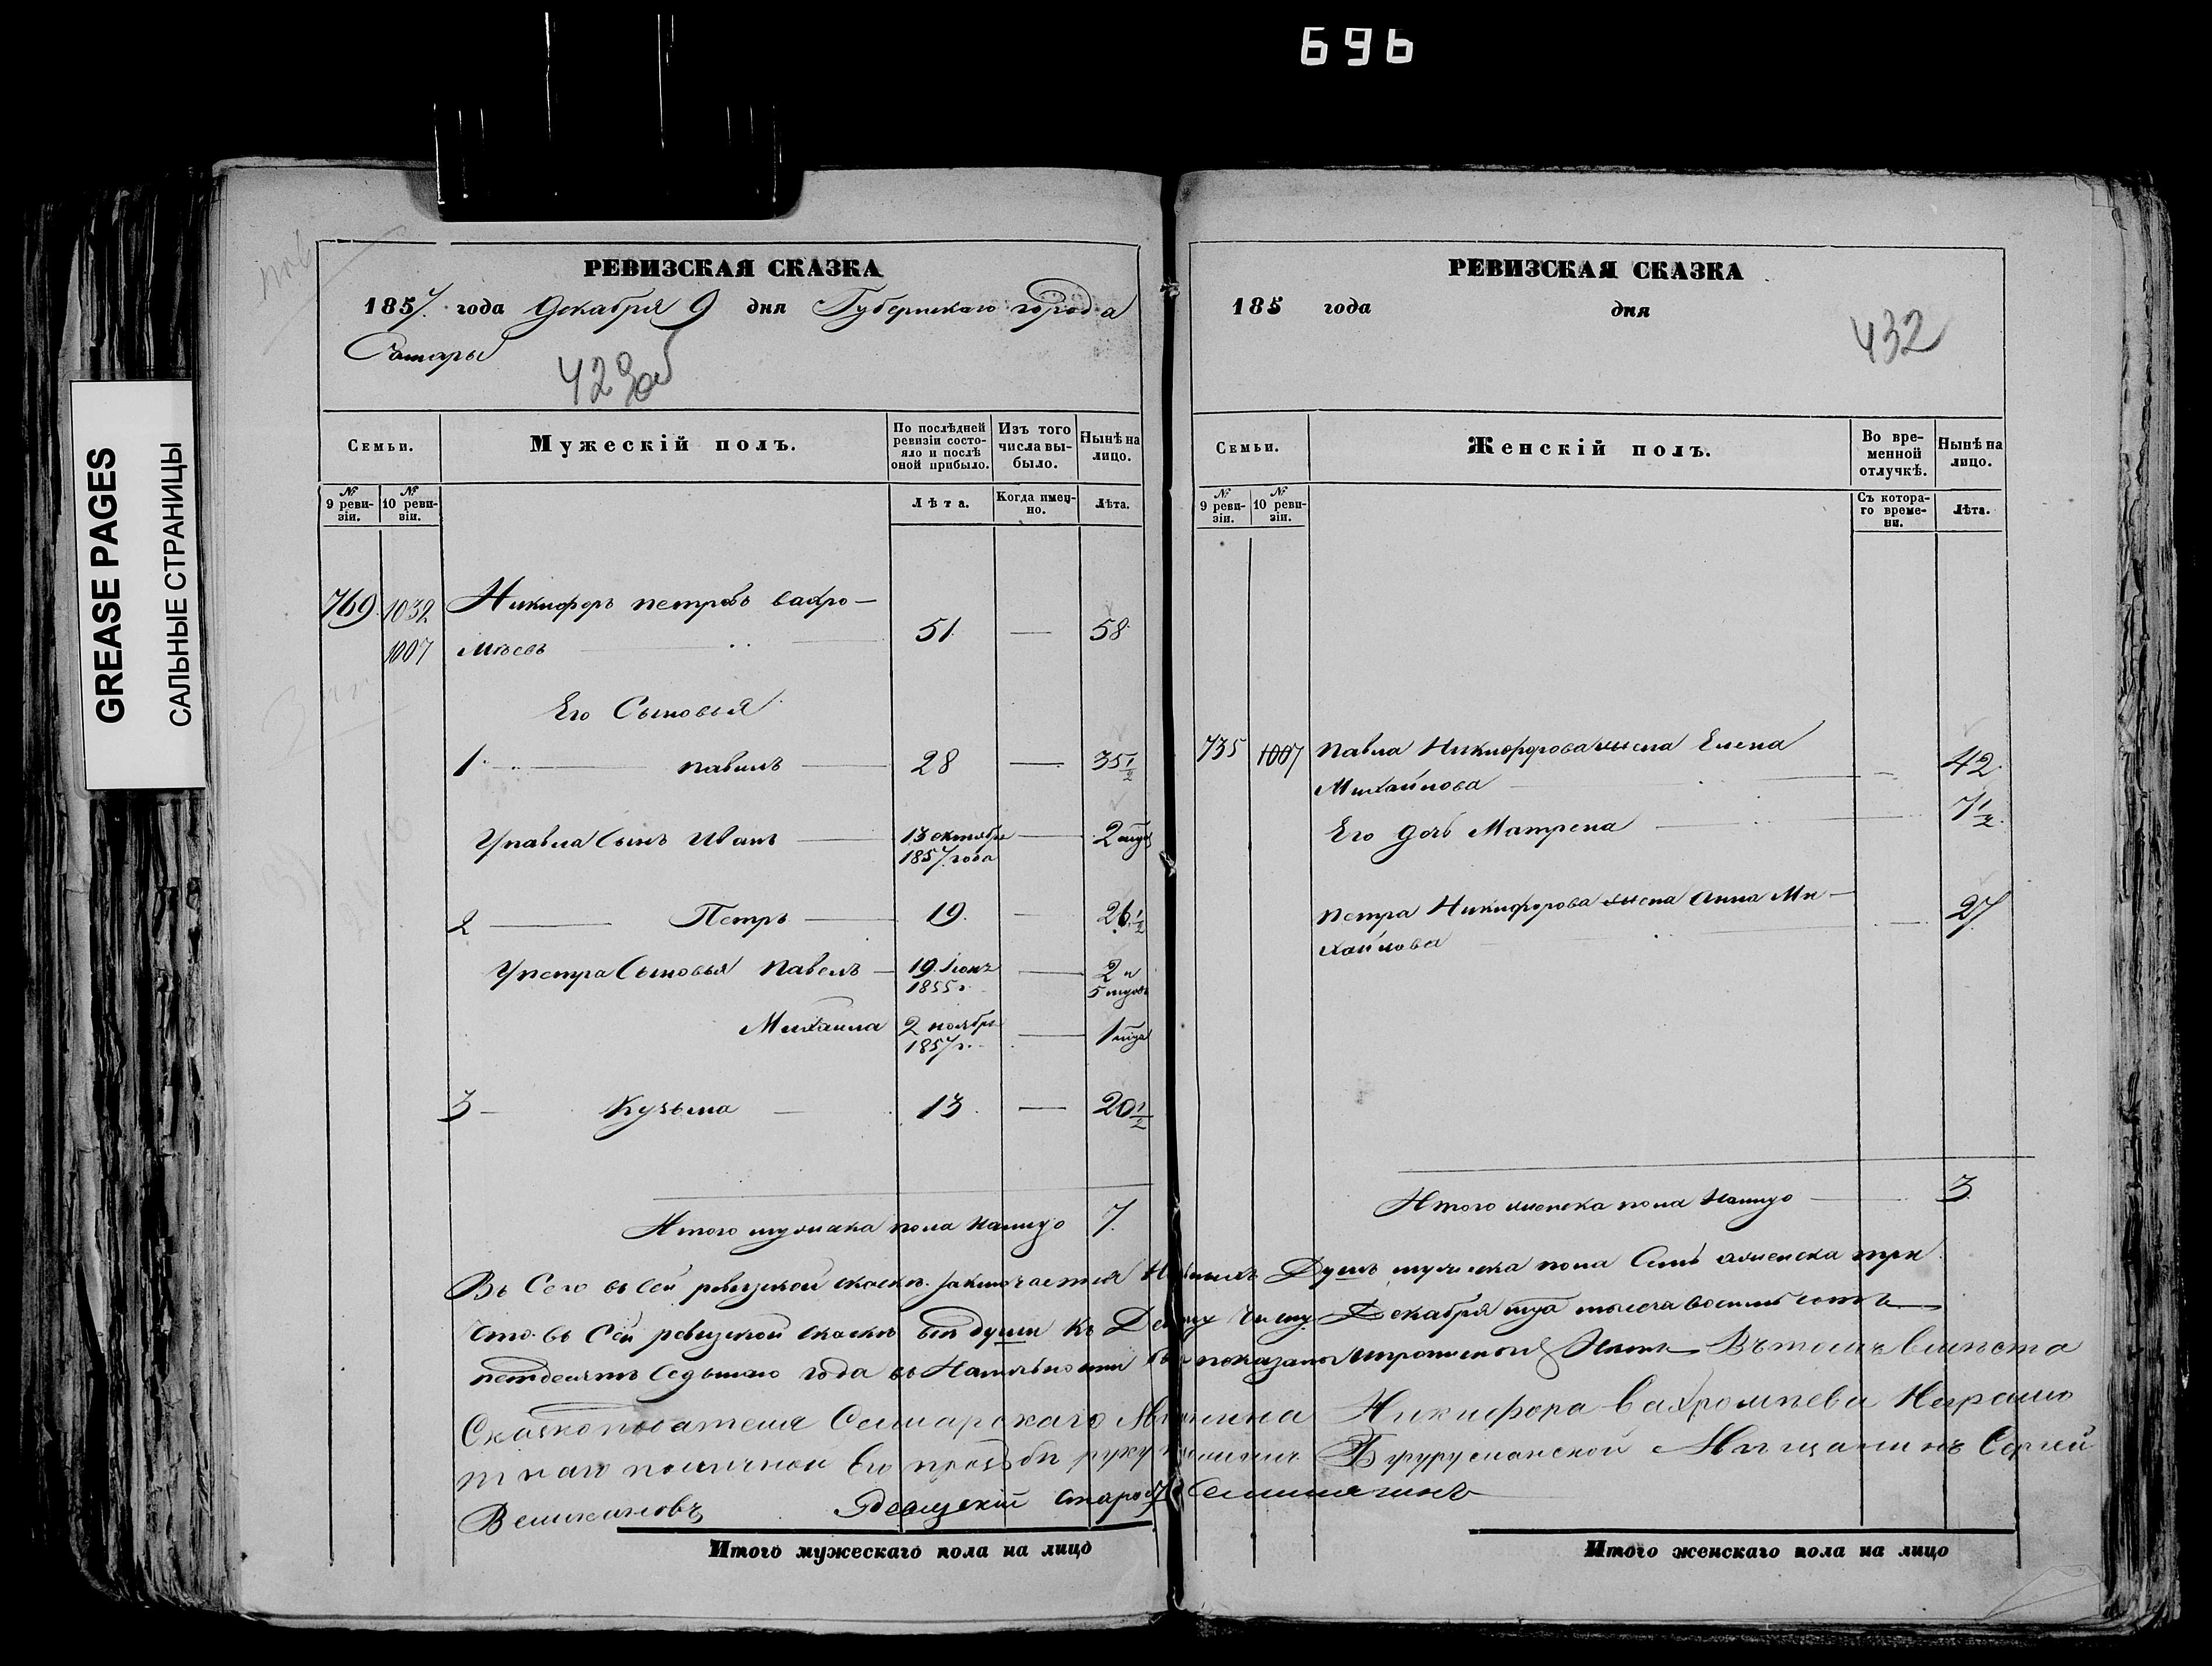 696
GREASE PAGES
САЛЬНЫЕ СТРАНИЦЫ
РЕВИЗСКАЯ СКАЗКА
1857. года Декабря 9 дня Губернскаго города
Самары
429об
Семьи.
Мужескій полъ.
По послѣдней ревизіи состояло и послѣ оной прибыло.
Изъ того числа выбыло.
Нынѣ на лицо.
№ 9 ревизіи.
№ 10 ревизіи.
Лѣта.
Когда именно.
Лѣта.
769 1032 Никифоръ петровъ вахро-
1007 мѣевъ 51. — 58
Его Сыновья
1 павилъ 28 — 35 1/2
У павла Сынъ Иванъ 13 октября 1857 года — 2 мца
2 Петръ 19. — 26 1/2
У петра Сыновья павелъ 19 Іюня 1855 г. — 2 и 5 мцовъ
Михаила 2 ноября 1857 г. — 1 мца
3 Кузьма 13 — 20 1/2
Итого мужеска пола налицо 7.
РЕВИЗСКАЯ СКАЗКА
185 года дня
432
Семьи.
Женскій полъ.
Во временной отлучкѣ.
Нынѣ на лицо.
№ 9 ревизіи.
№ 10 ревизіи.
Съ котораго времени.
Лѣта.
735 1007 павла Никифорова жена Елена
Михайлова 42
Его дочь Матрена 7 1/2
петра Никифорова жена анна Ми-
хайлова 27
Итого женска пола налицо 3
ревизской скаски заключается Душъ мужеска пола Семь аженска три
что въ Сей ревизской скаскѣ всѣ души къ Декабря мца тысеча восимь сотъ
петдесятъ Седьмаго года въ показаны Въ томъ вмѣста
Скаскоподателя Самарскаго Никифора вахромѣева Неграмо
тнаго поличной Его прозьби руку Бугурусланской Мѣщанинъ Сергей
Великановъ
Итого мужескаго пола на лицо
Итого женскаго пола на лицо